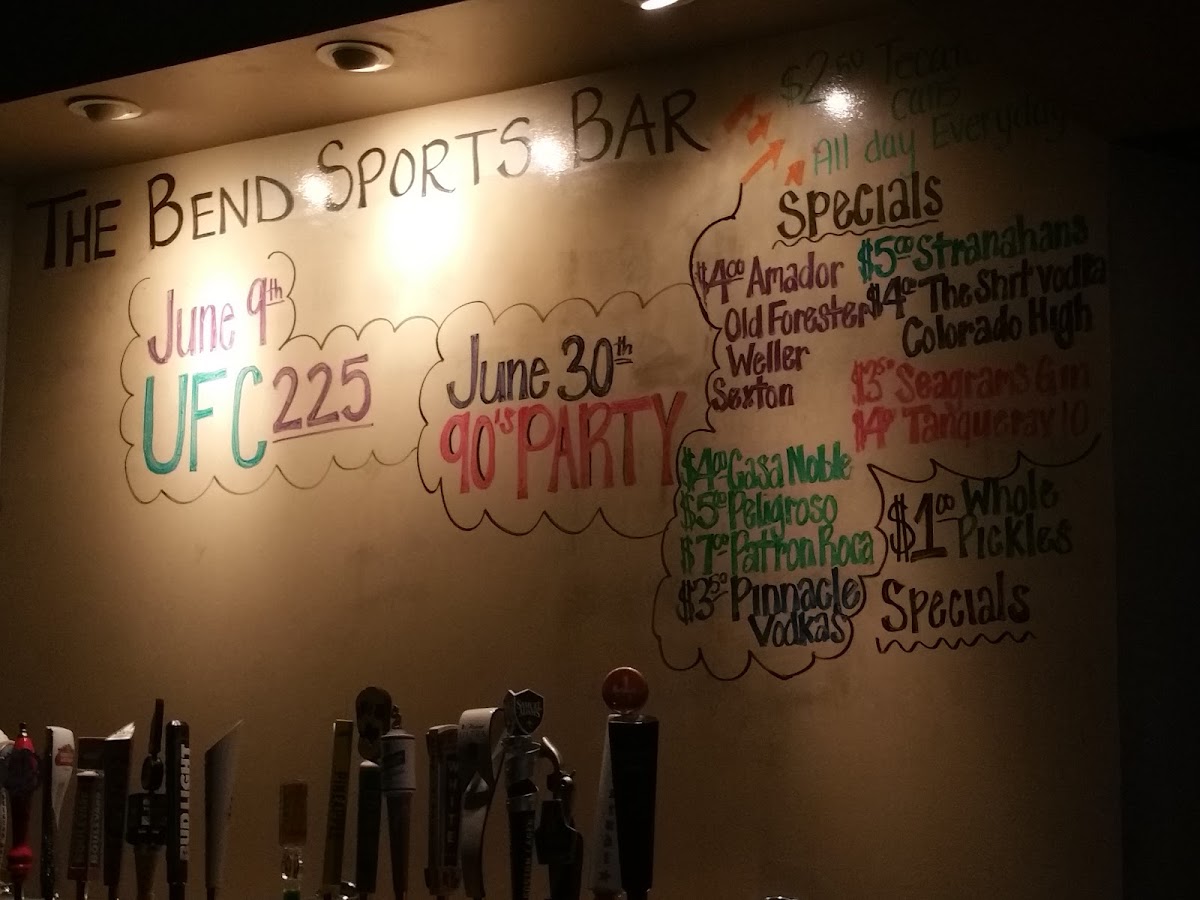 THE BEND SPORTS BAR
June 9th
UFC 225
June 30th
90's PARTY
$2.50 Tecate
cans
All day Everyday
Specials
$4.00 Amador
Old Forester
Weller
Sexton
$5.00 Stranahans
$4.00 The Shrt vodka
Colorado High
$3.50 Seagrams Gin
Tanqueray 10
$4.00 Casa Noble
$5.00 Peligroso
$7.00 Patron Roca
$3.50 Pinnacle
Vodkas
$1.00 Whole
Pickles
Specials
BUD LIGHT